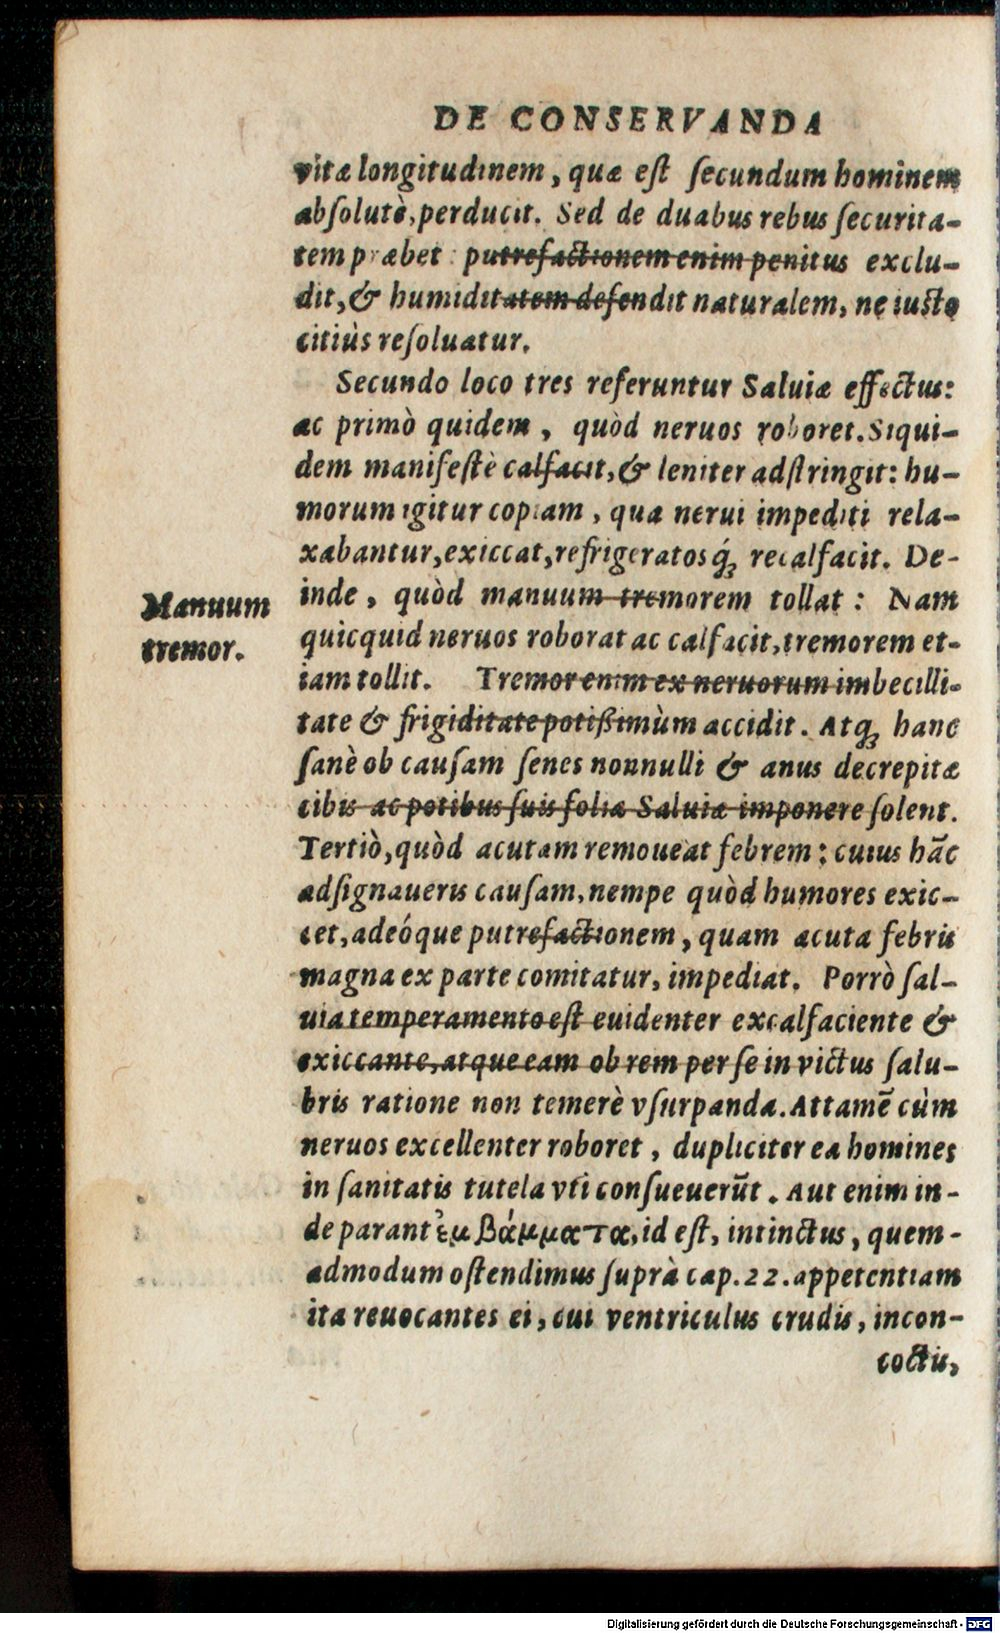 DE CONSERVANDA
vitæ longitudinem, quæ eſt ſecundum hominem
abſolutè, perducit. Sed de duabus rebus ſecurita-
tem præbet: putrefactionem enim penitus exclu-
dit, & humiditatem defendit naturalem, ne iuſto
citiùs reſoluatur.
Secundo loco tres referuntur Saluiæ effectus:
ac primò quidem, quòd neruos roboret. Siqui-
dem manifeſtè calfacit, & leniter adſtringit: hu-
morum igitur copiam, qua nerui impediti rela-
xabantur, exiccat, refrigeratos q́; recalfacit. De-
inde, quòd manuum tremorem tollat: Nam
Manuum
tremor.
quicquid neruos roborat ac calfacit, tremorem et-
iam tollit. Tremor enim ex neruorum imbecilli-
tate & frigiditate potißimùm accidit. Atq; hanc
ſanè ob cauſam ſenes nonnulli & anus decrepitæ
cibis ac potibus ſuis folia Saluiæ imponere ſolent.
Tertiò, quòd acutam remoueat febrem: cuius hāc
adſignaueris cauſam, nempe quòd humores exic-
cet, adeóque putrefactionem, quam acuta febris
magna ex parte comitatur, impediat. Porrò ſal-
uia temperamento eſt euidenter excalfaciente &
exiccante, atque eam ob rem per ſe in victus ſalu-
bris ratione non temerè vſurpanda. Attamē cùm
neruos excellenter roboret, dupliciter ea homines
in ſanitatis tutela vti conſueuerūt. Aut enim in-
de parant ἐμβάμματα, id eſt, intinctus, quem-
admodum oſtendimus ſuprà cap. 22. appetentiam
ita reuocantes ei, cui ventriculus crudis, incon-
coctis,
Digitalisierung gefördert durch die Deutsche Forschungsgemeinschaft - DFG